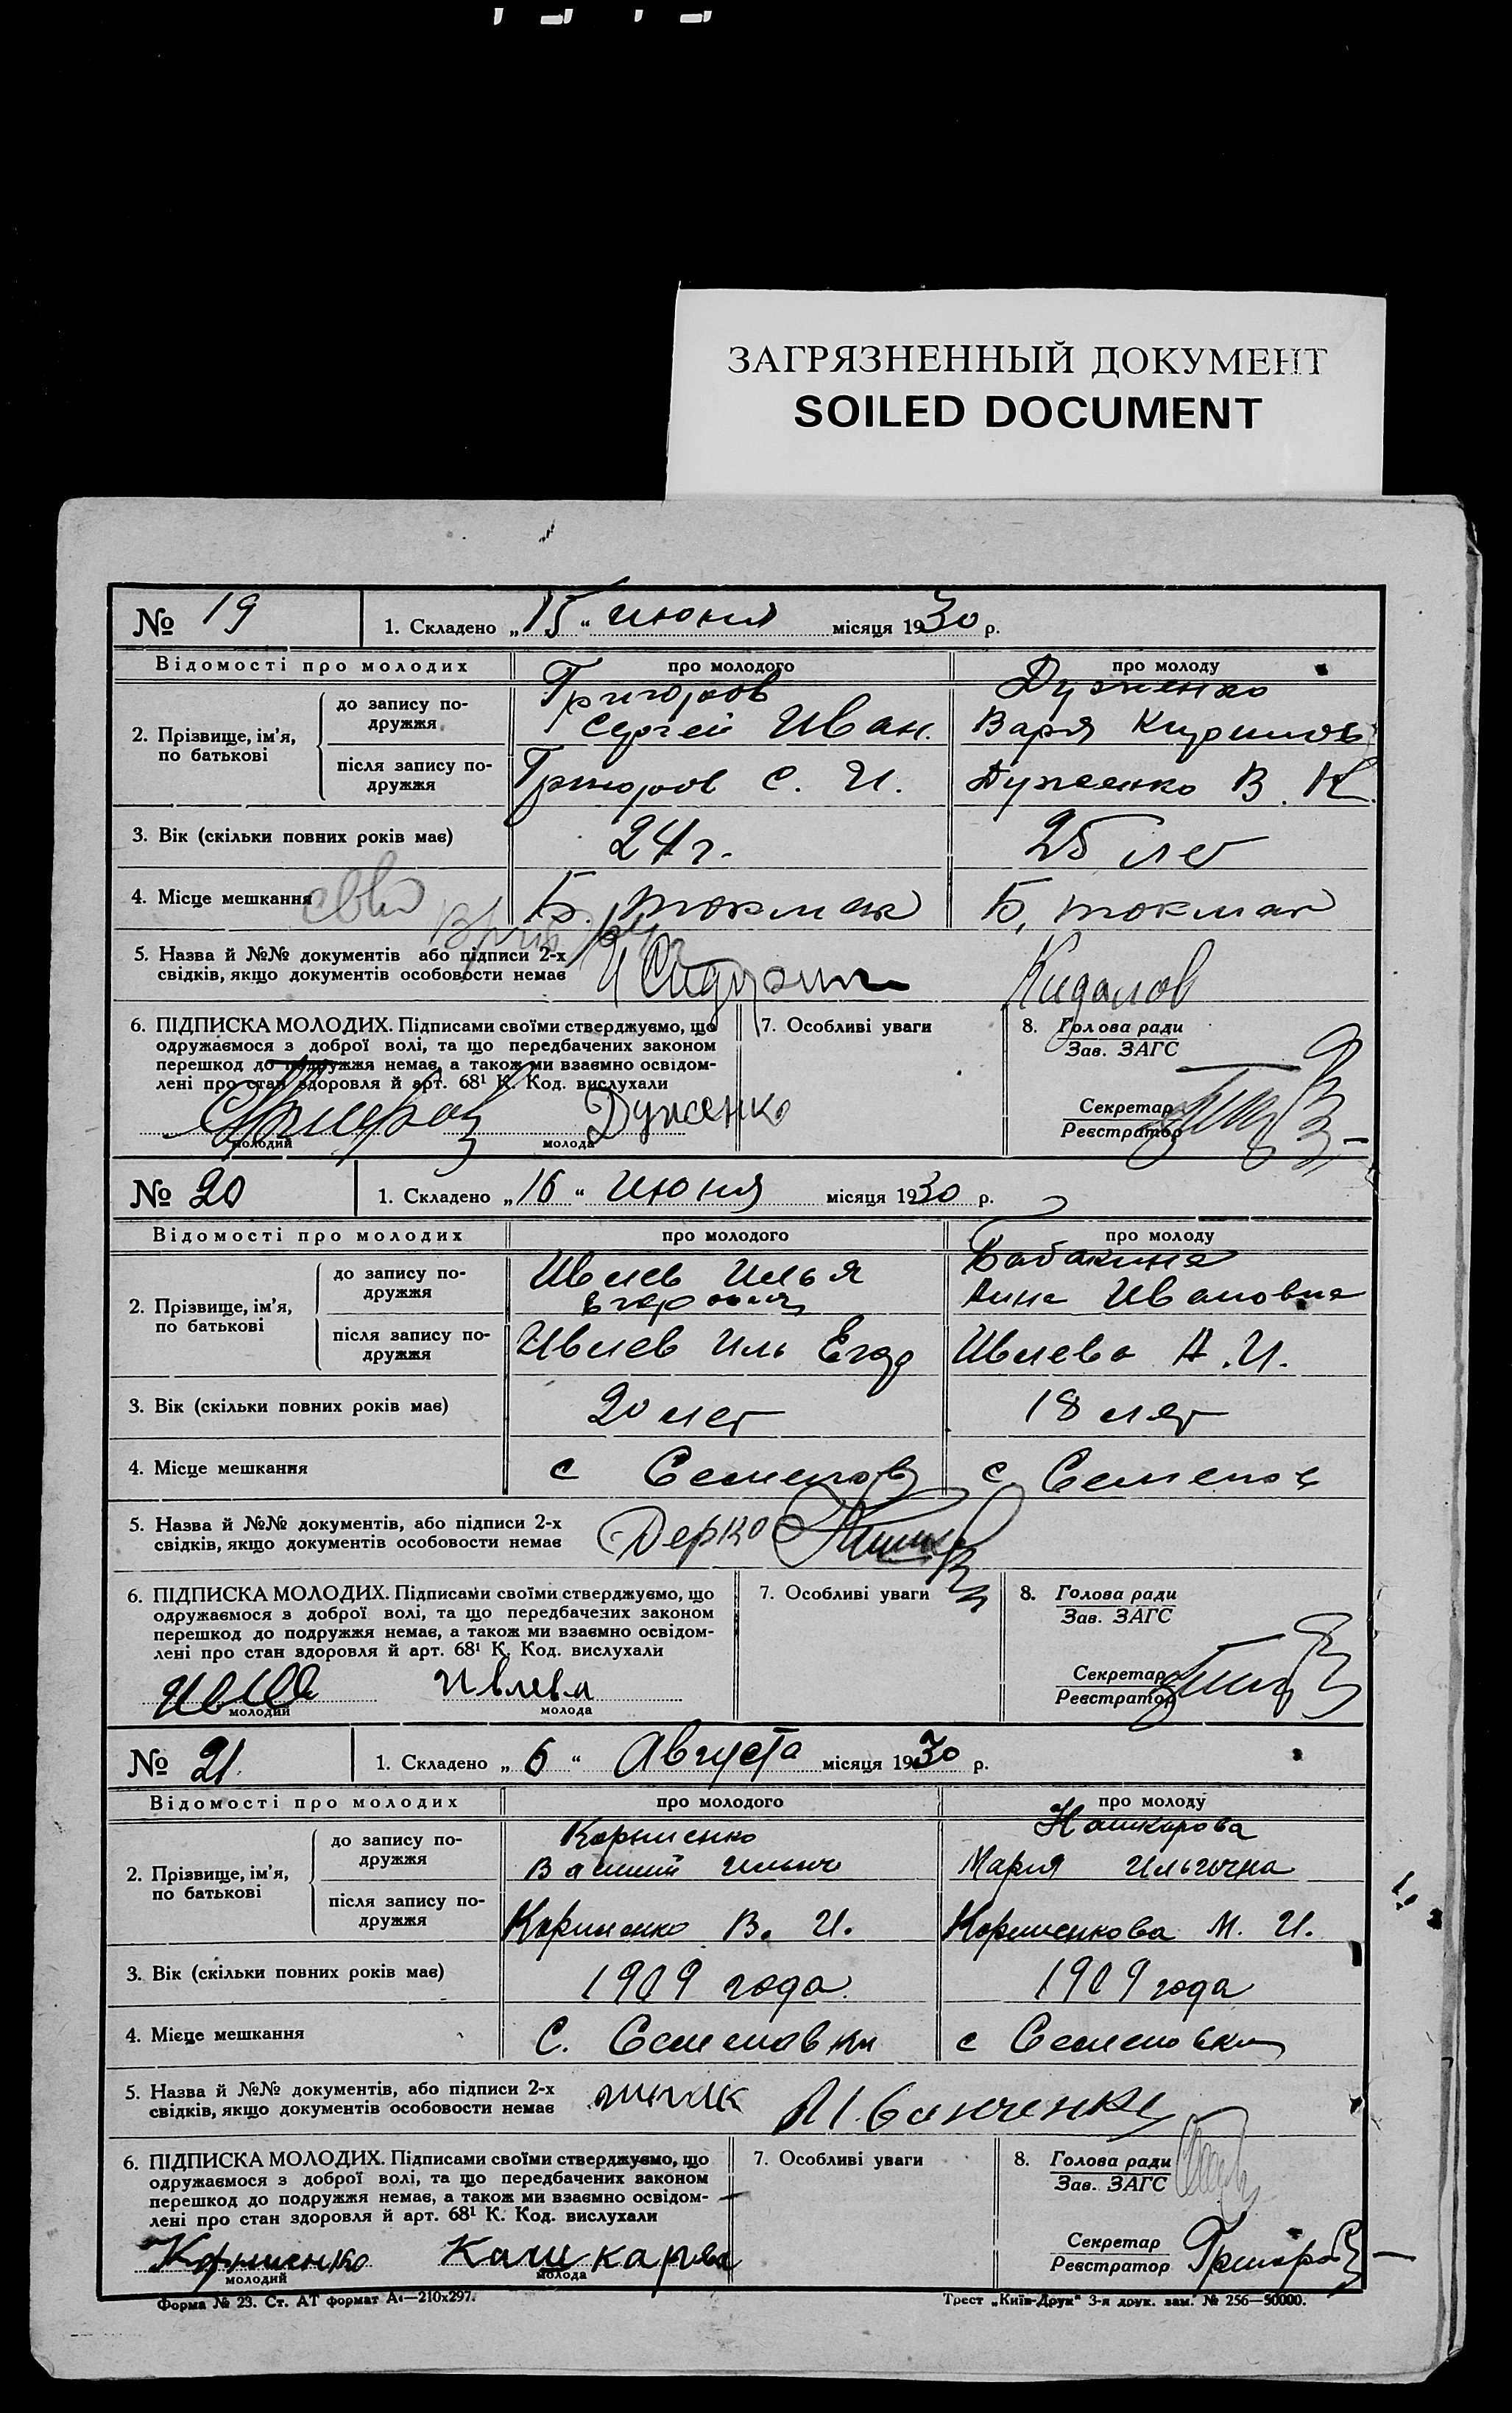 ЗАГРЯЗНЕННЫЙ ДОКУМЕНТ
SOILED DOCUMENT
№ 19
1. Складено „15“ июня місяця 1930 р.
Відомості про молодих
про молодого
про молоду
2. Прізвище, ім'я, по батькові
до запису по-
дружжя
Григоров
Сергей Иван.
Дуженко
Варя Кирилов
після запису по-
дружжя
Григоров С. И.
Дуженко В. К.
3. Вік (скільки повних років має)
24 г.
25 лет
4. Місце мешкання
Б. Токмак
Б. Токмак
5. Назва й №№ документів або підписи 2-х
свідків, якщо документів особовости немає
6. ПІДПИСКА МОЛОДИХ. Підписами своїми стверджуємо, що
одружаємося з доброї волі, та що передбачених законом
перешкод до подружжя немає, а також ми взаємно освідом-
лені про стан здоровля й арт. 68¹ К. Код. вислухали
Дуженко
молодий
молода
7. Особливі уваги
8. Голова ради
Зав. ЗАГС
Секретар
Реєстратор
№ 20
1. Складено „16“ Июня місяця 1930 р.
Відомості про молодих
про молодого
про молоду
2. Прізвище, ім'я,
по батькові
до запису по-
дружжя
Ивлев Илья
Егорович
Бабакина
Анна Ивановна
після запису по-
дружжя
Ивлев Иль Егор
Ивлева А. И.
3. Вік (скільки повних років має)
20 лет
18 лет
4. Місце мешкання
с Семенов
с. Семенов
5. Назва й №№ документів, або підписи 2-х
свідків, якщо документів особовости немає
Дерко
6. ПІДПИСКА МОЛОДИХ. Підписами своїми стверджуємо, що
одружаємося з доброї волі, та що передбачених законом
перешкод до подружжя немає, а також ми взаємно освідом-
лені про стан здоровля й арт. 68¹ К. Код. вислухали
Ивлева
молодий
молода
7. Особливі уваги
8. Голова ради
Зав. ЗАГС
Секретар
Реєстратор
№ 21.
1. Складено „6“ Августа місяця 1930 р.
Відомості про молодих
про молодого
про молоду
2. Прізвище, ім'я,
по батькові
до запису по-
дружжя
Мария Ильична
після запису по-
дружжя
В. И.
М. И.
3. Вік (скільки повних років має)
1909 года
1909 года
4. Місце мешкання
С. Семеновки
с Семеновки
5. Назва й №№ документів, або підписи 2-х
свідків, якщо документів особовости немає
6. ПІДПИСКА МОЛОДИХ. Підписами своїми стверджуємо, що
одружаємося з доброї волі, та що передбачених законом
перешкод до подружжя немає, а також ми взаємно освідом-
лені про стан здоровля й арт. 68¹ К. Код. вислухали
Кашкарва
молодий
молода
7. Особливі уваги
8. Голова ради
Зав. ЗАГС
Секретар
Реєстратор
Форма № 23. Ст. АТ формат А₄—210х297.
Трест „Київ-Друк“ 3-я друк. зам. № 256—50000.